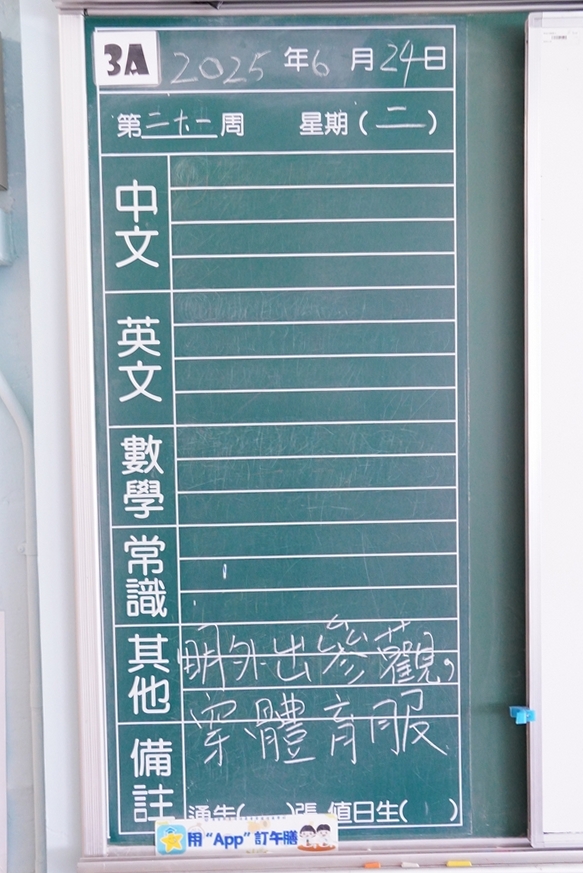 3A 2025年6月24日
第二十一周 星期(二)
中文
英文
數學
常識
其他 明外出參觀,
穿體育服
備註
通告( )張 值日生( )
用“App”訂午膳